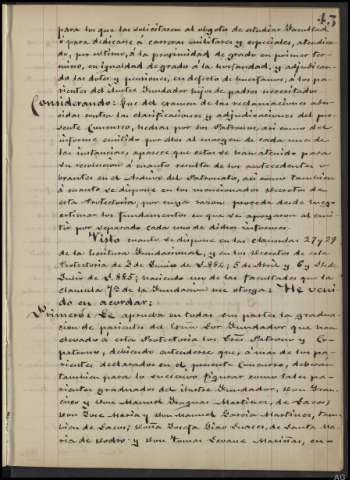 43
para los que las solicitaren al objeto de estudiar Facultad
o para dedicarse a carreras militares y especiales, atendien
do, por último, á la proximidad de grado en primer tér
mino, en igualdad de grado á la horfandad, y adjudican
do las dotes y pensiones, en defecto de huérfanos, á los pa
rientes del ilustre Fundador hijos de padres necesitados
Considerando: Que del examen de las reclamaciones abor
tadas contra las clasificaciones y adjudicaciones del pre
sente Concurso, hechas por los Patronos, así como del
informe emitido por ellos al margen de cada una de
las instancias, aparece que estos se han atenido para
su resolución á cuanto resulta de los antecedentes
obrantes en el Archivo del Patronato, así como tambien
á cuanto se dispone en los mencionados decretos de
esta Protectoría, por cuya razon procede desde luego
estimar los fundamentos en que se apoyaron al emi
tir por separado cada uno de dichos informes.
Visto cuanto se dispone en las cláusulas 27 y 29
de la Escritura Fundacional, y en los decretos de esta
Protectoría de 3 de Junio de 1.884, 5 de Abril y 6 y 31 de
Julio de 1.885; haciendo uso de las facultades que la
cláusula 7ª de la Fundación me otorga: He veni
do en acordar:
Primero: Se aprueba en todas sus partes la gradua
cion de parientes del Excmo Sor Fundador que han
elevado á esta Protectoría los Sres Patrono y Co-
patronos, debiendo entenderse que, á mas de los pa
rientes declarados en el presente Concurso, deberán
tambien para lo sucesivo figurar como tales pa
rientes graduados del ilustre Fundador, Don Fran
cisco y Don Manuel Martinez, de Lazos;
Don José Maria y Don Manuel Garcia Martinez, tam
bien de Lazos; Doña Josefa Diaz Suarez, de Santa Ma
ria de Dodro y Don Tomas Mariñas, en-
AG